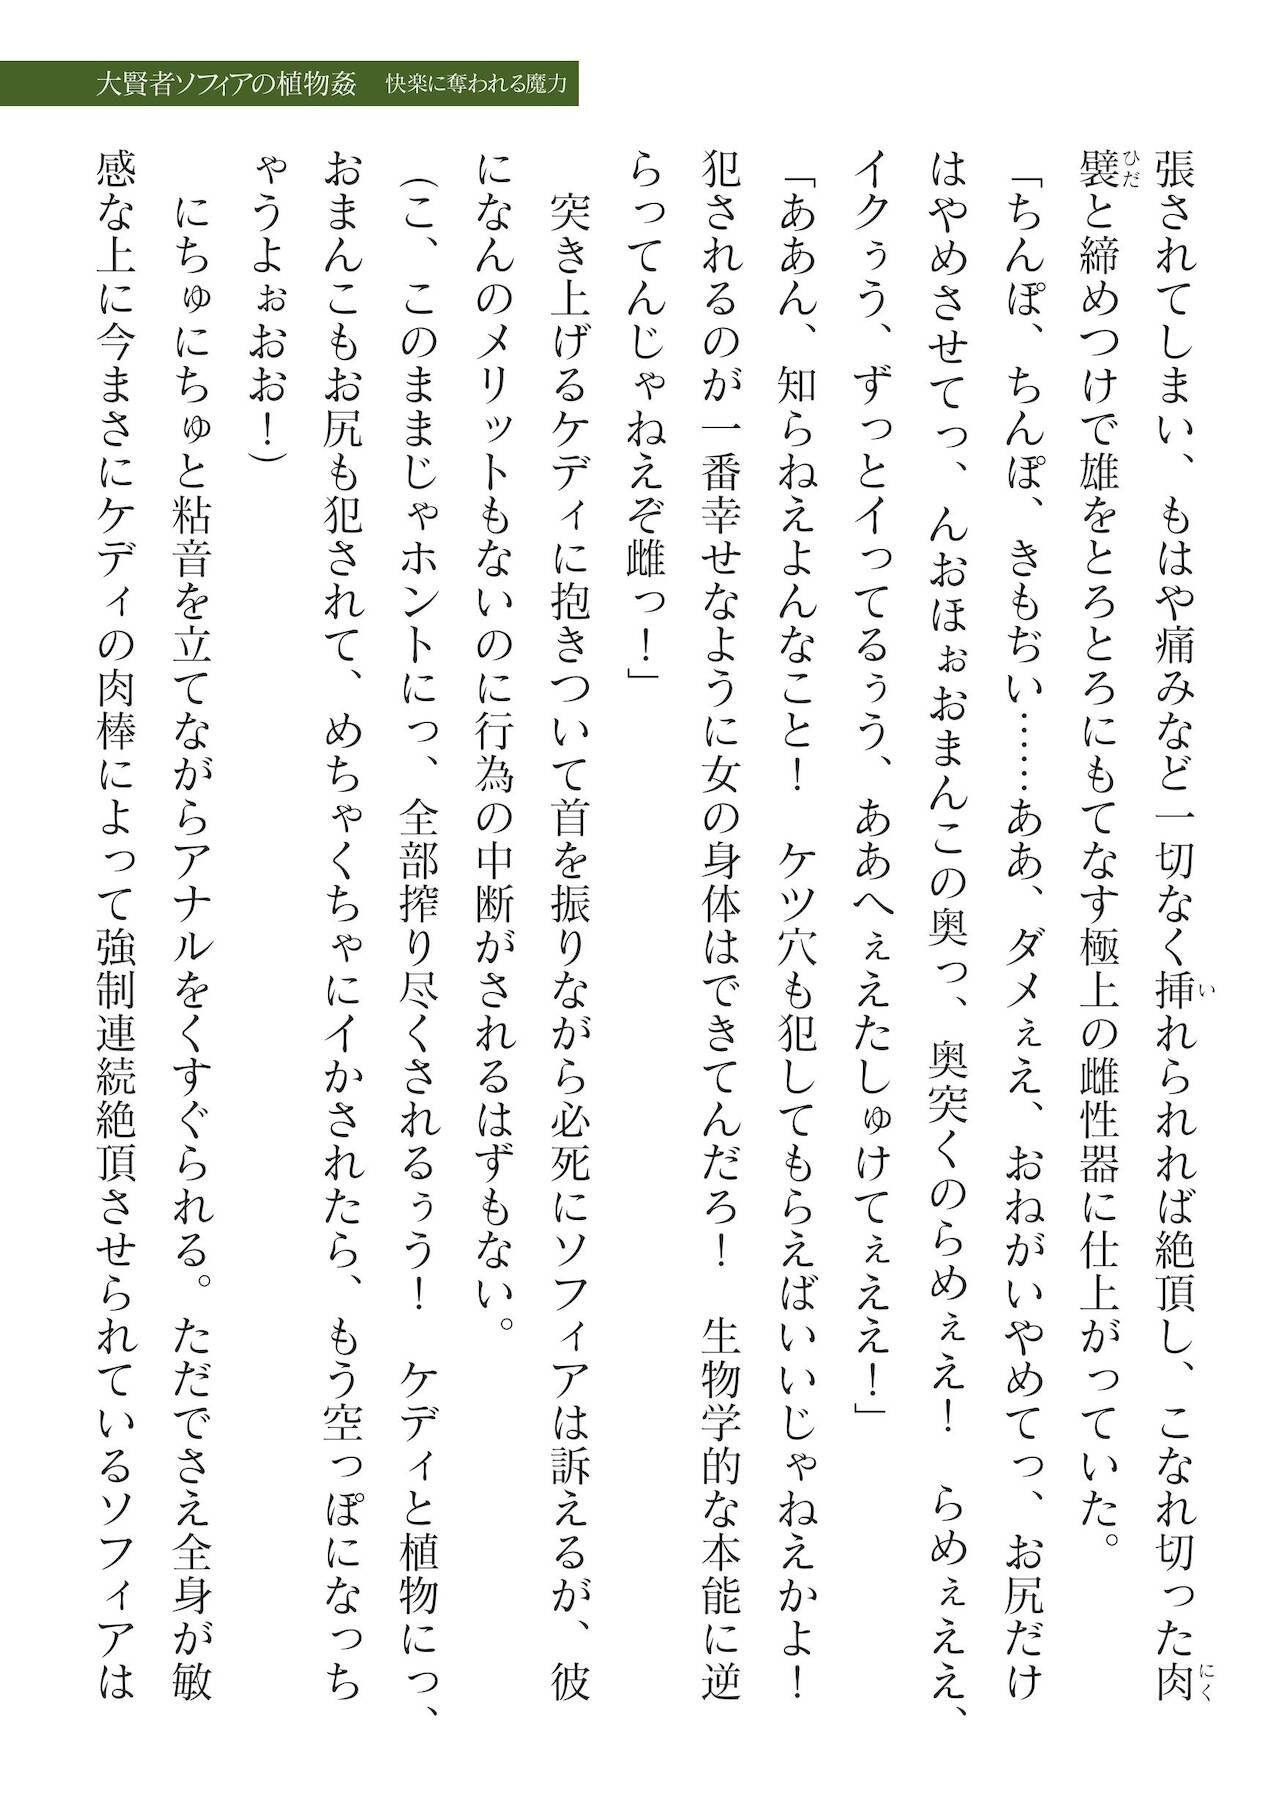 大賢者ソフィアの植物姦　快楽に奪われる魔力
張されてしまい、もはや痛みなど一切なく挿れられれば絶頂し、こなれ切った肉
襞と締めつけで雄をとろとろにもてなす極上の雌性器に仕上がっていた。
「ちんぽ、ちんぽ、きもぢい……ああ、ダメぇえ、おねがいやめてっ、お尻だけ
はやめさせてっ、んおほぉおまんこの奥っ、奥突くのらめぇえ！　らめぇええ、
イクぅう、ずっとイってるぅう、ああへぇえたしゅけてぇええ！」
「ああん、知らねえよんなこと！　ケツ穴も犯してもらえばいいじゃねえかよ！
犯されるのが一番幸せなように女の身体はできてんだろ！　生物学的な本能に逆
らってんじゃねえぞ雌っ！」
　突き上げるケディに抱きついて首を振りながら必死にソフィアは訴えるが、彼
になんのメリットもないのに行為の中断がされるはずもない。
（こ、このままじゃホントにっ、全部搾り尽くされるぅう！　ケディと植物にっ、
おまんこもお尻も犯されて、めちゃくちゃにイかされたら、もう空っぽになっち
ゃうよぉおお！）
　にちゅにちゅと粘音を立てながらアナルをくすぐられる。ただでさえ全身が敏
感な上に今まさにケディの肉棒によって強制連続絶頂させられているソフィアは